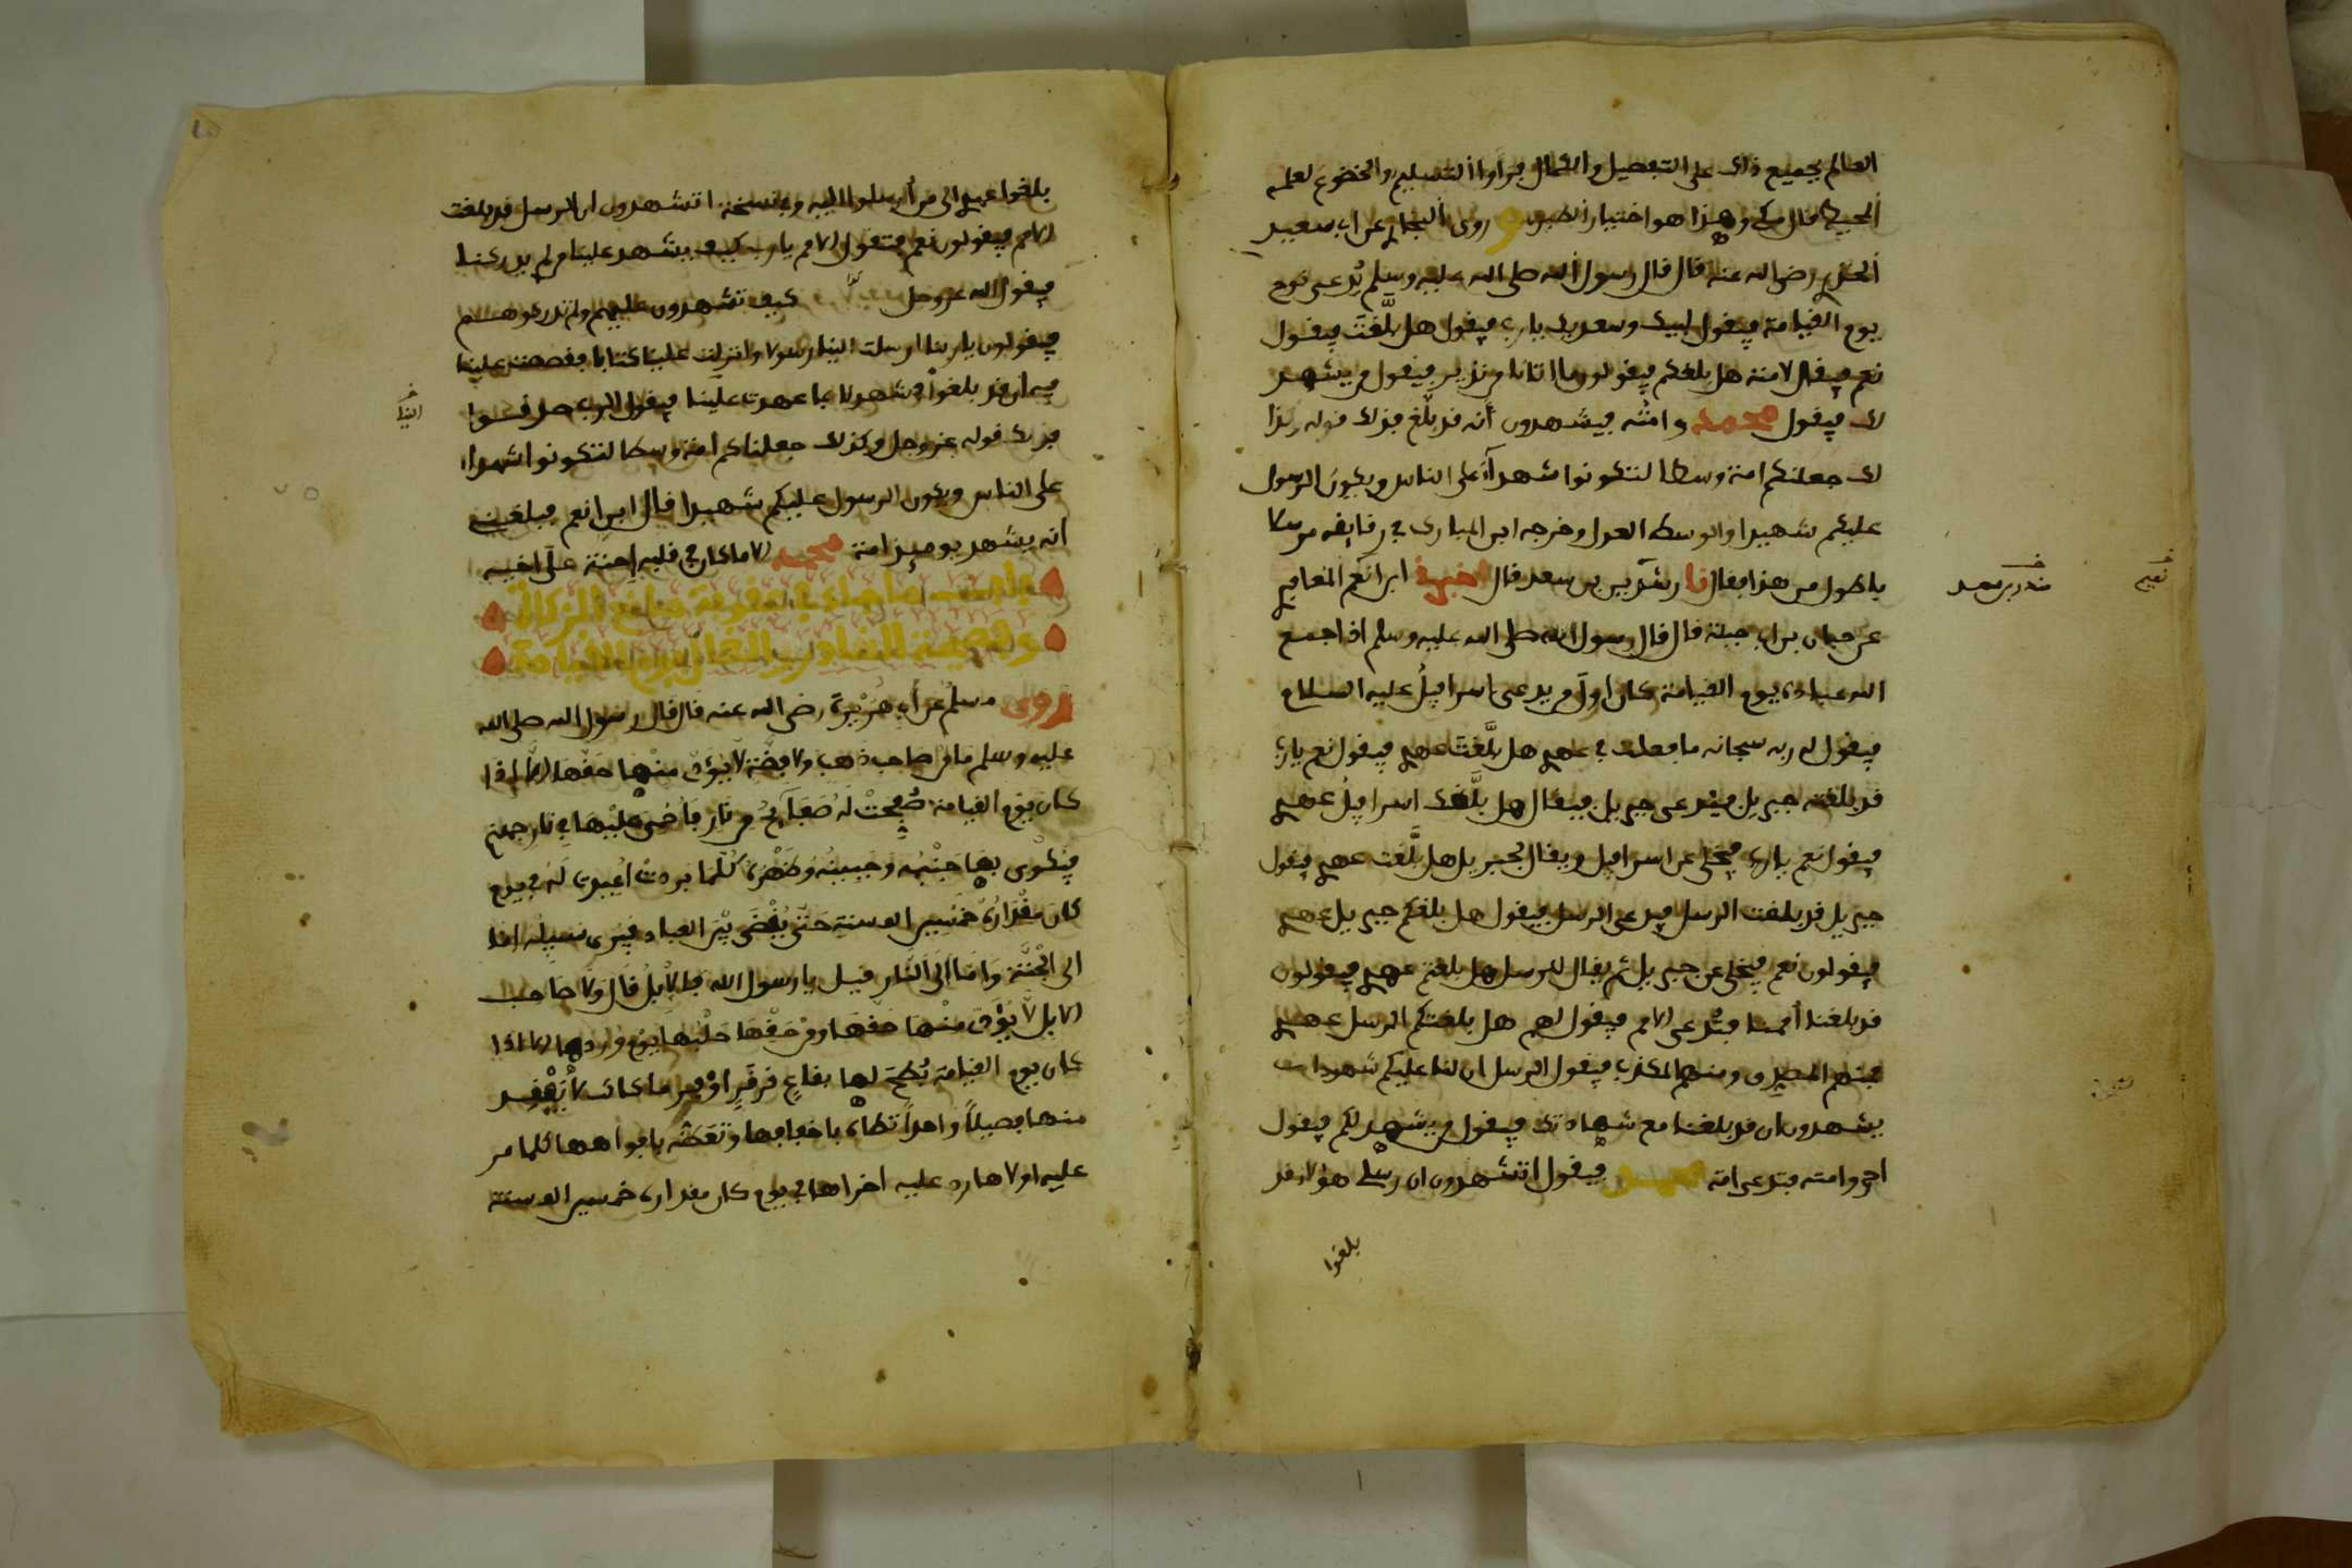 العالم بجميع ذلك على التفصيل والكمال فرأوا التسليم والخضوع لعلمه
المحيط قال مكي وهذا هو اختيار الطبري و روى البخاري عن ابي سعيد
الخدري رضي الله عنه قال قال رسول الله صلى الله عليه وسلم يُدعى نوح
يوم القيامة فيقول لبيك وسعديك يا رب فيقول هل بلَّغتَ فيقول
نعم فيقال لامته هل بلغكم فيقولون ما اتانا من نذير فيقول من يشهد
لك فيقول محمد وامته فيشهدون أنه قد بلّغ فذلك قوله وكذا
لك جعلنكم امة وسطا لتكونوا شهدآء على الناس ويكون الرسول
عليكم شهيدا والوسط العدل وخرجه ابن المبارك في رقايقه مرسلا
باطول من هذا فقال نا رشدين بن سعد قال اخبرني ابن انعم المعافري
عن حبان بن ابي جبلة قال قال رسول الله صلى الله عليه وسلم اذا جمع
الله عباده يوم القيامة كان اول من يدعى اسرافيلُ عليه السلام
فيقول له ربه سبحانه ما فعلت في عهدي هل بلَّغتَ عهدي فيقول نعم يا رب
قد بلغته جبريل فيُدعى جبريل فيقال هل بلَّغك اسرافيلُ عهدي
فيقول نعم يا رب فيخلى عن اسرافيل ويقال لجبريل هل بلَّغت عهدي فيقول
جبريل قد بلغت الرسل فيدعى الرسل فيقول هل بلغكم جبريل عهدي
فيقولون نعم فيخلى عن جبريل ثم يقال للرسل هل بلغتم عهدي فيقولون
قد بلغنا أممنا فتُدعى الامم فيقول لهم هل بلغتكم الرسل عهدي
فمنهم المصدق ومنهم المكذب فيقول الرسل ان لنا عليكم شهداء
يشهدون ان قد بلغنا مع شهادتك فيقول من يشهد لكم فيقول
احمد وامته فتدعى امة محمد فيقول اتشهدون ان رسلي هؤلاء قد
بلغوا
نعيم
بلغوا عهدي الى من أرسلوا اليه وفي نسخة اتشهدون ان الرسل قد بلغت
الامم فيقولون نعم فتقول الامم يا رب كيف يشهد علينا من لم يدركنا
فيقول الله عز وجل كيف تشهدون عليهم ولم تدركوهم
فيقولون يا ربنا ارسلت الينا رسولا وانزلت علينا كتابا فقصصت علينا
فيه أن قد بلغوا فشهدنا بما عهدت علينا فيقول الرب صدقوا
الينا
فذلك قوله عز وجل وكذلك جعلناكم امة وسطا لتكونوا شهداء
على الناس ويكون الرسول عليكم شهيدا قال ابن انعم فبلغني
انه يشهد يوميذ امة محمد الا ما كان في قلبه إحنة على اخيه
باب ما جاء في عقوبة مانع الزكاة
وفضيحة الغادر والغال يوم القيامة
روى مسلم عن أبي هُريرة رضي الله عنه قال قال رسول الله صلى الله
عليه وسلم ما من صاحب ذهب ولا فضة لا يؤدي منها حقها إلا إذا
كان يوم القيامة صُفِحتْ لَهُ صَفَآيحُ من نار فأُحمي عليْها في نار جهنم
فيُكْوى بها جَنْبُه وجَبينُه وظَهْرُه كُلَّما بردت أعيدت له في يوم
كان مقْدارُه خمسين الف سنة حتى يُقْضى بيْن العباد فيرى سبيله اما
الى الجنَّة وامّا الى النَّار قيل يا رسول الله فالابل قال ولا صاحب
ابل لا يؤدي منْها حقها ومن حقها حلبها يوم وردها الا اذا
كان يوم القيامة بُطح لها بقاعٍ قرقرٍ اوْفر ما كانت لا يفْقِد
منها فصيلاً واحداً تطأه باخفافها وتعضه بافواهها كلما مر
عليه اولاها رد عليه اخراها في يوم كان مقداره خمسين الف سنة